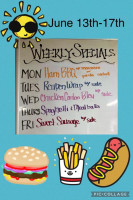 June 13th-17th
WEEKLY SPECIALS
MON Ham BBQ
TUES Reuben Wrap w/
WED Chicken Cordon Bleu w/
THURS Spaghetti & Meatballs
FRI Sweet Sausage w/
PIC•COLLAGE